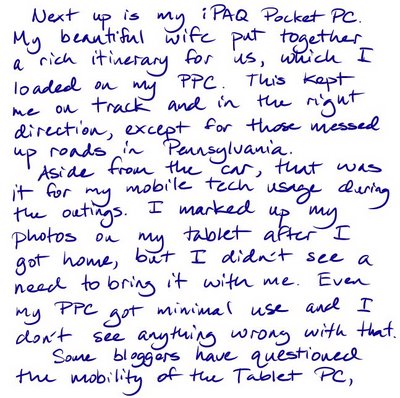 Next up is my iPAQ Pocket PC.
My beautiful wife put together
a rich itinerary for us, which I
loaded on my PPC. This kept
me on track and in the right
direction, except for those messed
up roads in Pennsylvania.
Aside from the car, that was
it for my mobile tech usage during
the outings. I marked up my
photos on my tablet after I
got home, but I didn't see a
need to bring it with me. Even
my PPC got minimal use and I
don't see anything wrong with that.
Some bloggers have questioned
the mobility of the Tablet PC,